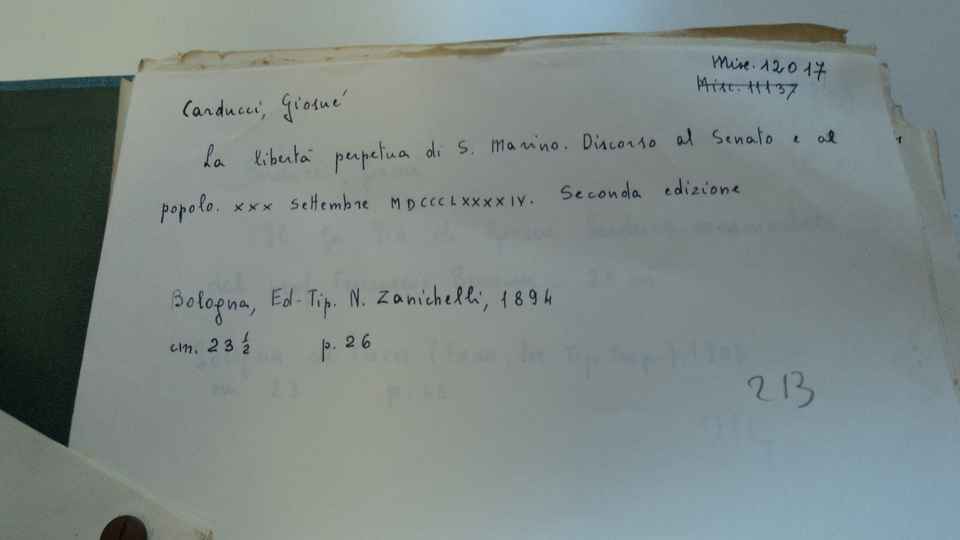 Misc. 12017
Misc. 11137
Carducci, Giosué
La libertà perpetua di S. Marino. Discorso al Senato e al
popolo. XXX Settembre MDCCCLXXXXIV. Seconda edizione
Bologna, Ed-Tip. N. Zanichelli, 1894
cm. 23 ½ p. 26
213